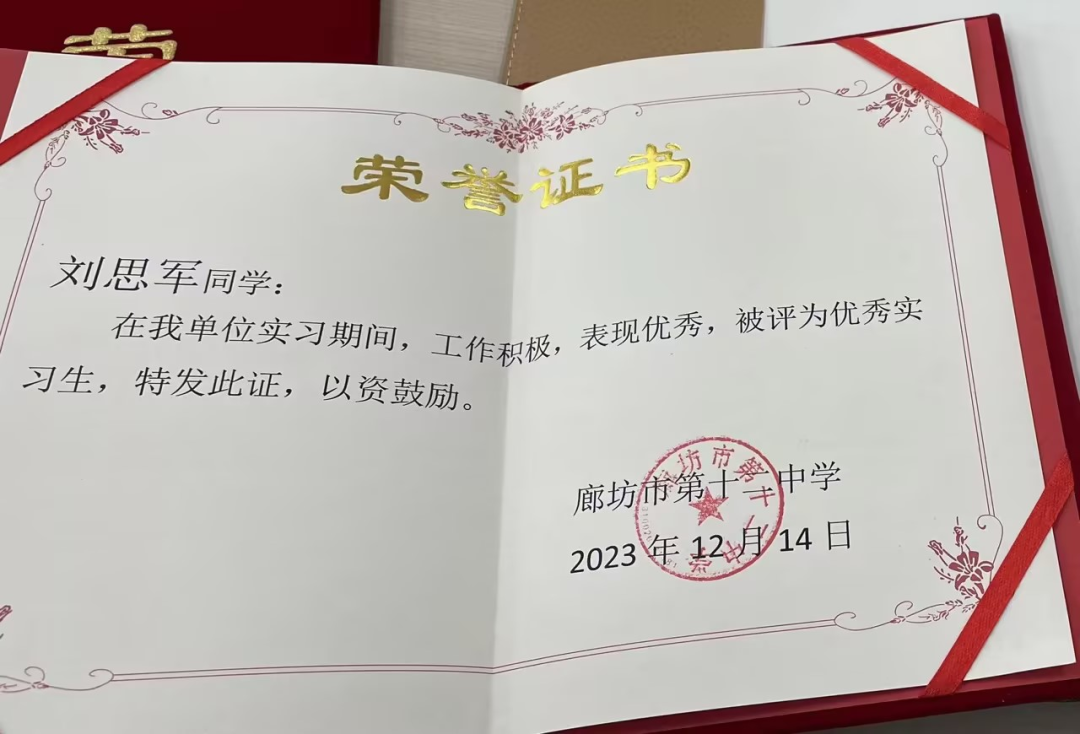 荣
荣誉证书
刘思军同学：
在我单位实习期间，工作积极，表现优秀，被评为优秀实
习生，特发此证，以资鼓励。
廊坊市第十二中学
2023 年 12 月 14 日
廊坊市第十二中学